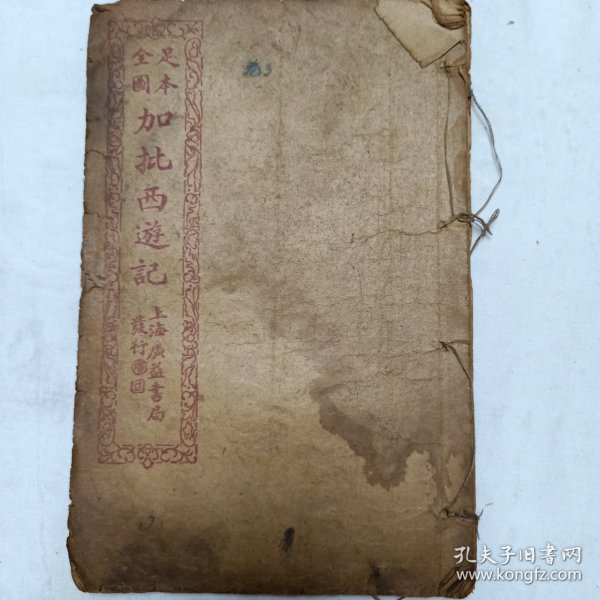 足本
全圖
加批西遊記
上海廣益書局
發行
孔夫子旧书网
www.kongfz.com